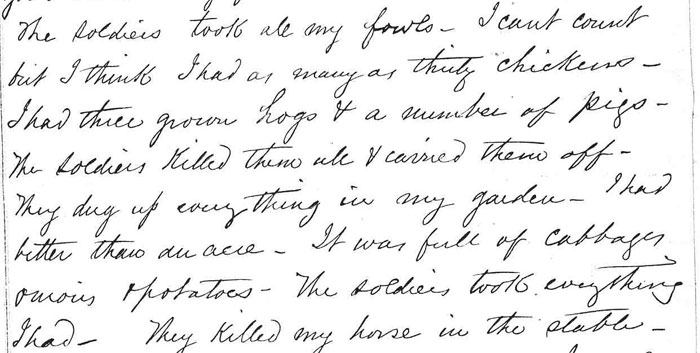 The soldiers took all my fowls – I cant count
but I think I had as many as thirty chickens –
I had three grown hogs & a number of pigs –
The soldiers killed them all & carried them off –
They dug up everything in my garden – I had
better than an acre – It was full of cabbages
onions & potatoes – The soldiers took everything
I had – They killed my horse in the stable –